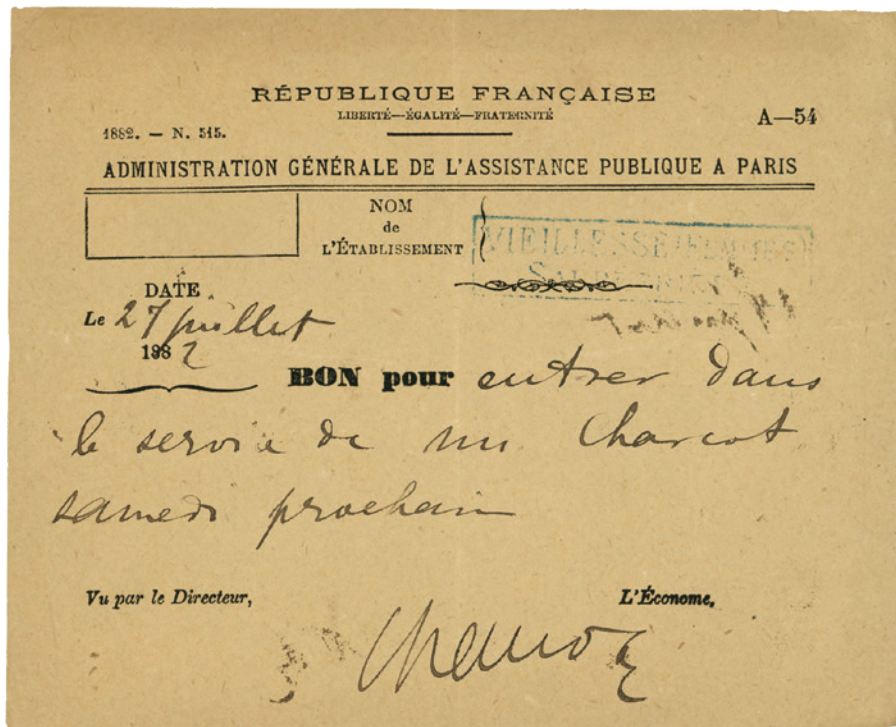 RÉPUBLIQUE FRANÇAISE
LIBERTÉ—ÉGALITÉ—FRATERNITÉ
A—54
1882. — N. 515.
ADMINISTRATION GÉNÉRALE DE L'ASSISTANCE PUBLIQUE A PARIS
NOM
de
L'ÉTABLISSEMENT
VIEILLESSE (FEMMES)
DATE
Le 27 juillet
1882
BON pour entrer dans
le service de mr Charcot
samedi prochain
Vu par le Directeur,
L'Économe,